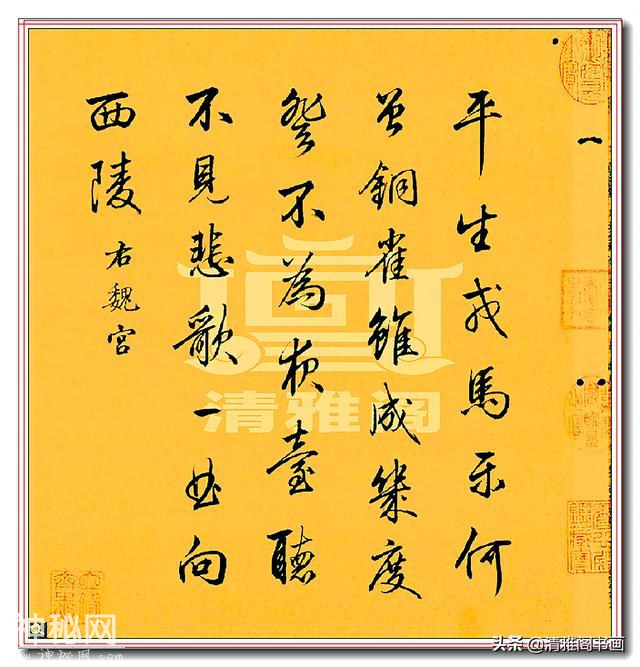 平生戎馬樂何
曾銅雀雖成幾度
登不為夜臺聽
不見悲歌一曲向
西陵 右魏宮
清雅阁
神秘网
头条 @清雅阁书画